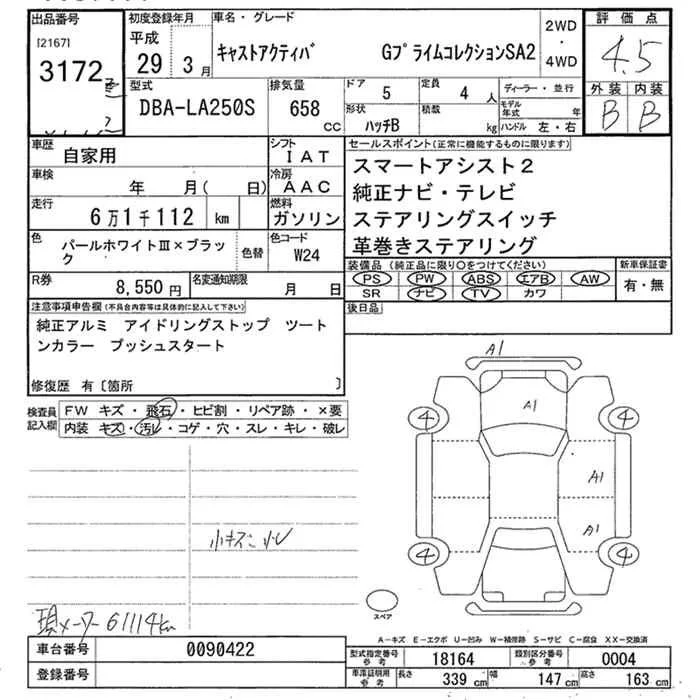 出品番号
[2167]
3172
初度登録年月
平成
29 3月
車名・グレード
キャストアクティバ GプライムコレクションSA2
2WD
・
4WD
評価点
4.5
外装 内装
B B
型式
DBA-LA250S
排気量
658
CC
ドア
5
定員
4人
ディーラー・並行
形状
ハッチB
積載
kg
モデル年式 年
ハンドル 左・右
車歴
自家用
シフト
IAT
車検
年 月( 日)
冷房
AAC
走行
6万1千112 km
燃料
ガソリン
色
パールホワイトⅢ×ブラック
色替
色コード
W24
R券
8,550円
名変通知期限
月 日
セールスポイント(正常に機能するものに限ります)
スマートアシスト2
純正ナビ・テレビ
ステアリングスイッチ
革巻きステアリング
装備品(純正品に限り〇をつけてください)
PS PW ABS エアB AW
SR ナビ TV カワ
新車保証書
有・無
後日品
注意事項申告欄(不具合内容等は具体的に記入して下さい)
純正アルミ アイドリングストップ ツート
ンカラー プッシュスタート
修復歴 有〔箇所 〕
検査員
記入欄
FW キズ・飛石・ヒビ割・リペア跡・×要
内装 キズ・汚レ・コゲ・穴・スレ・キレ・破レ
A1
A1
4 4
A1
A1
4 4
スペア
小キズ 小U
現メーター61114km
A-キズ E-エクボ U-凹み W-補修跡 S-サビ C-腐食 XX-交換済
車台番号
0090422
登録番号
型式指定番号
参考
18164
類別区分番号
参考
0004
車庫証明用
参考
長さ 339cm 幅 147cm 高さ 163cm